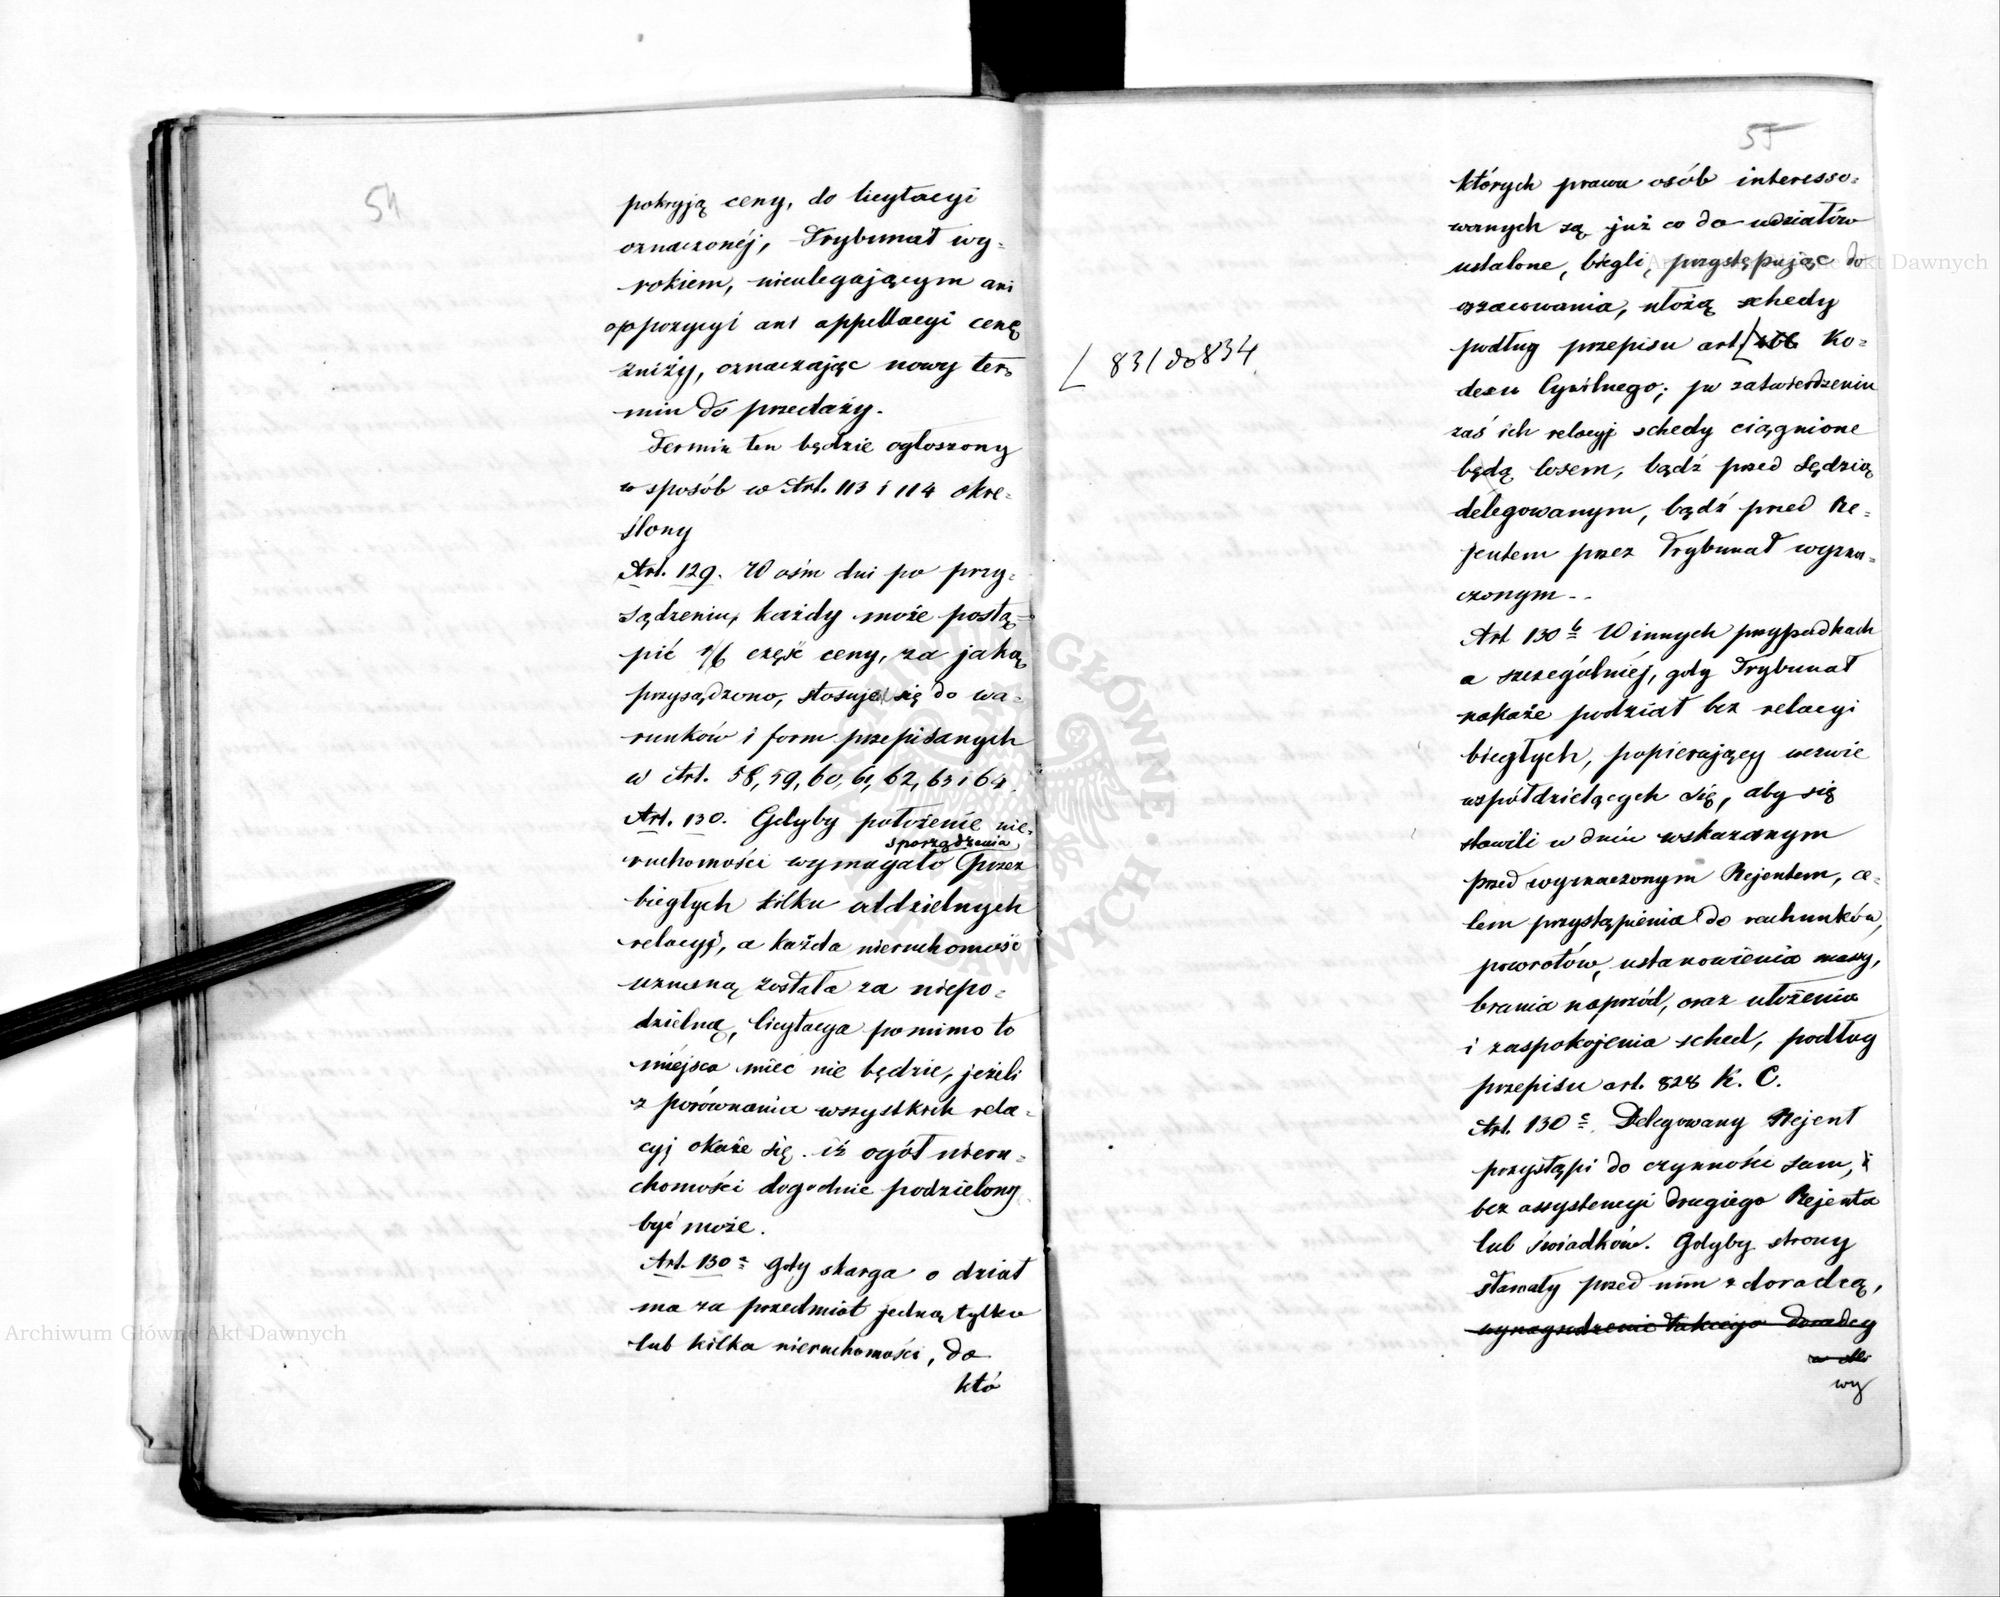 54
pokryją ceny, do licytacyi
oznaczonéj, Trybunał wy-
rokiem, nieulegającym ani
oppozycyi ani appellacyi cenę
zniży, oznaczając nowy ter-
min do przedaży.
Termin ten będzie ogłoszony
w sposób w Art. 113 i 114 okre-
ślony
Art. 129. W ośm dni po przy-
sądzeniu, każdy może postą-
pić 1/6 część ceny, za jaką
przysądzono, stosując się do wa-
runków i form przepisanych
w Art. 58, 59, 60, 61, 62, 63 i 64.
Art. 130. Gdyby położenie nie-
sporządzenia
ruchomości wymagało przez
biegłych kilku oddzielnych
relacyj, a każda nieruchomość
uznaną została za niepo-
dzielną, licytacya pomimo to
miejsca mieć nie będzie, jeżeli
z porównania wszystkich rela-
cyj okaże się, iż ogół nieru-
chomości dogodnie podzielony
być może.
Art. 130 a Gdy skarga o dział
ma za przedmiot jedną tylko
lub kilka nieruchomości, do
któ
55
których prawa osób interesso-
wanych są już co do udziałów
ustalone, biegli, przystępując do
oszacowania, ułożą schedy
podług przepisu art. Ko-
831 do 834
dexu Cywilnego; po zatwierdzeniu
zaś ich relacyj schedy ciągnione
będą losem, bądź przed Sędzią
delegowanym, bądź przed Re-
jentem przez Trybunał wyzna-
czonym.
Art 130 b W innych przypadkach
a szczególniéj, gdy Trybunał
nakaże podział bez relacyi
biegłych, popierający wezwie
współdzielących się, aby się
stawili w dniu wskazanym
przed wyznaczonym Rejentem, ce-
lem przystąpienia do rachunków,
powrotów, ustanowienia massy,
brania naprzód, oraz ułożenia
i zaspokojenia sched, podług
przepisu art. 828 K. C.
Art. 130 c Delegowany Rejent
przystąpi do czynności sam,
bez assystencyi drugiego Rejenta
lub świadków. Gdyby strony
stawały przed nim z doradcą,
wynagrodzenie takiego doradcy
wy
Archiwum Główne Akt Dawnych
Archiwum Główne Akt Dawnych